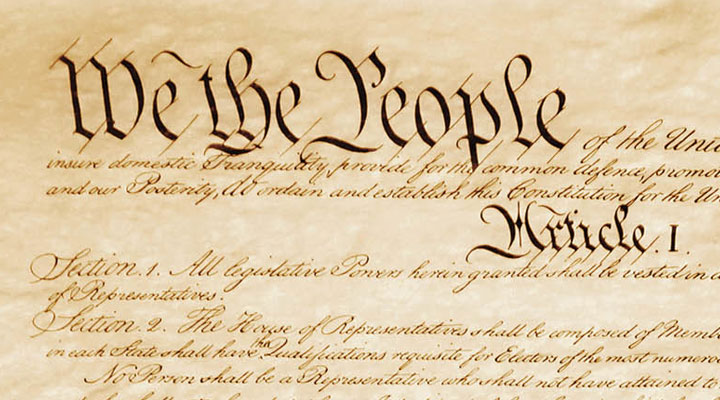 We the People of the Unit
insure domestic Tranquility, provide for the common defence, promo
and our Posterity, do ordain and establish this Constitution for the Un
Article. I.
Section. 1. All legislative Powers herein granted shall be vested in a
of Representatives.
Section. 2. The House of Representatives shall be composed of Memb
in each State shall have the Qualifications requisite for Electors of the most numerou
No Person shall be a Representative who shall not have attained to